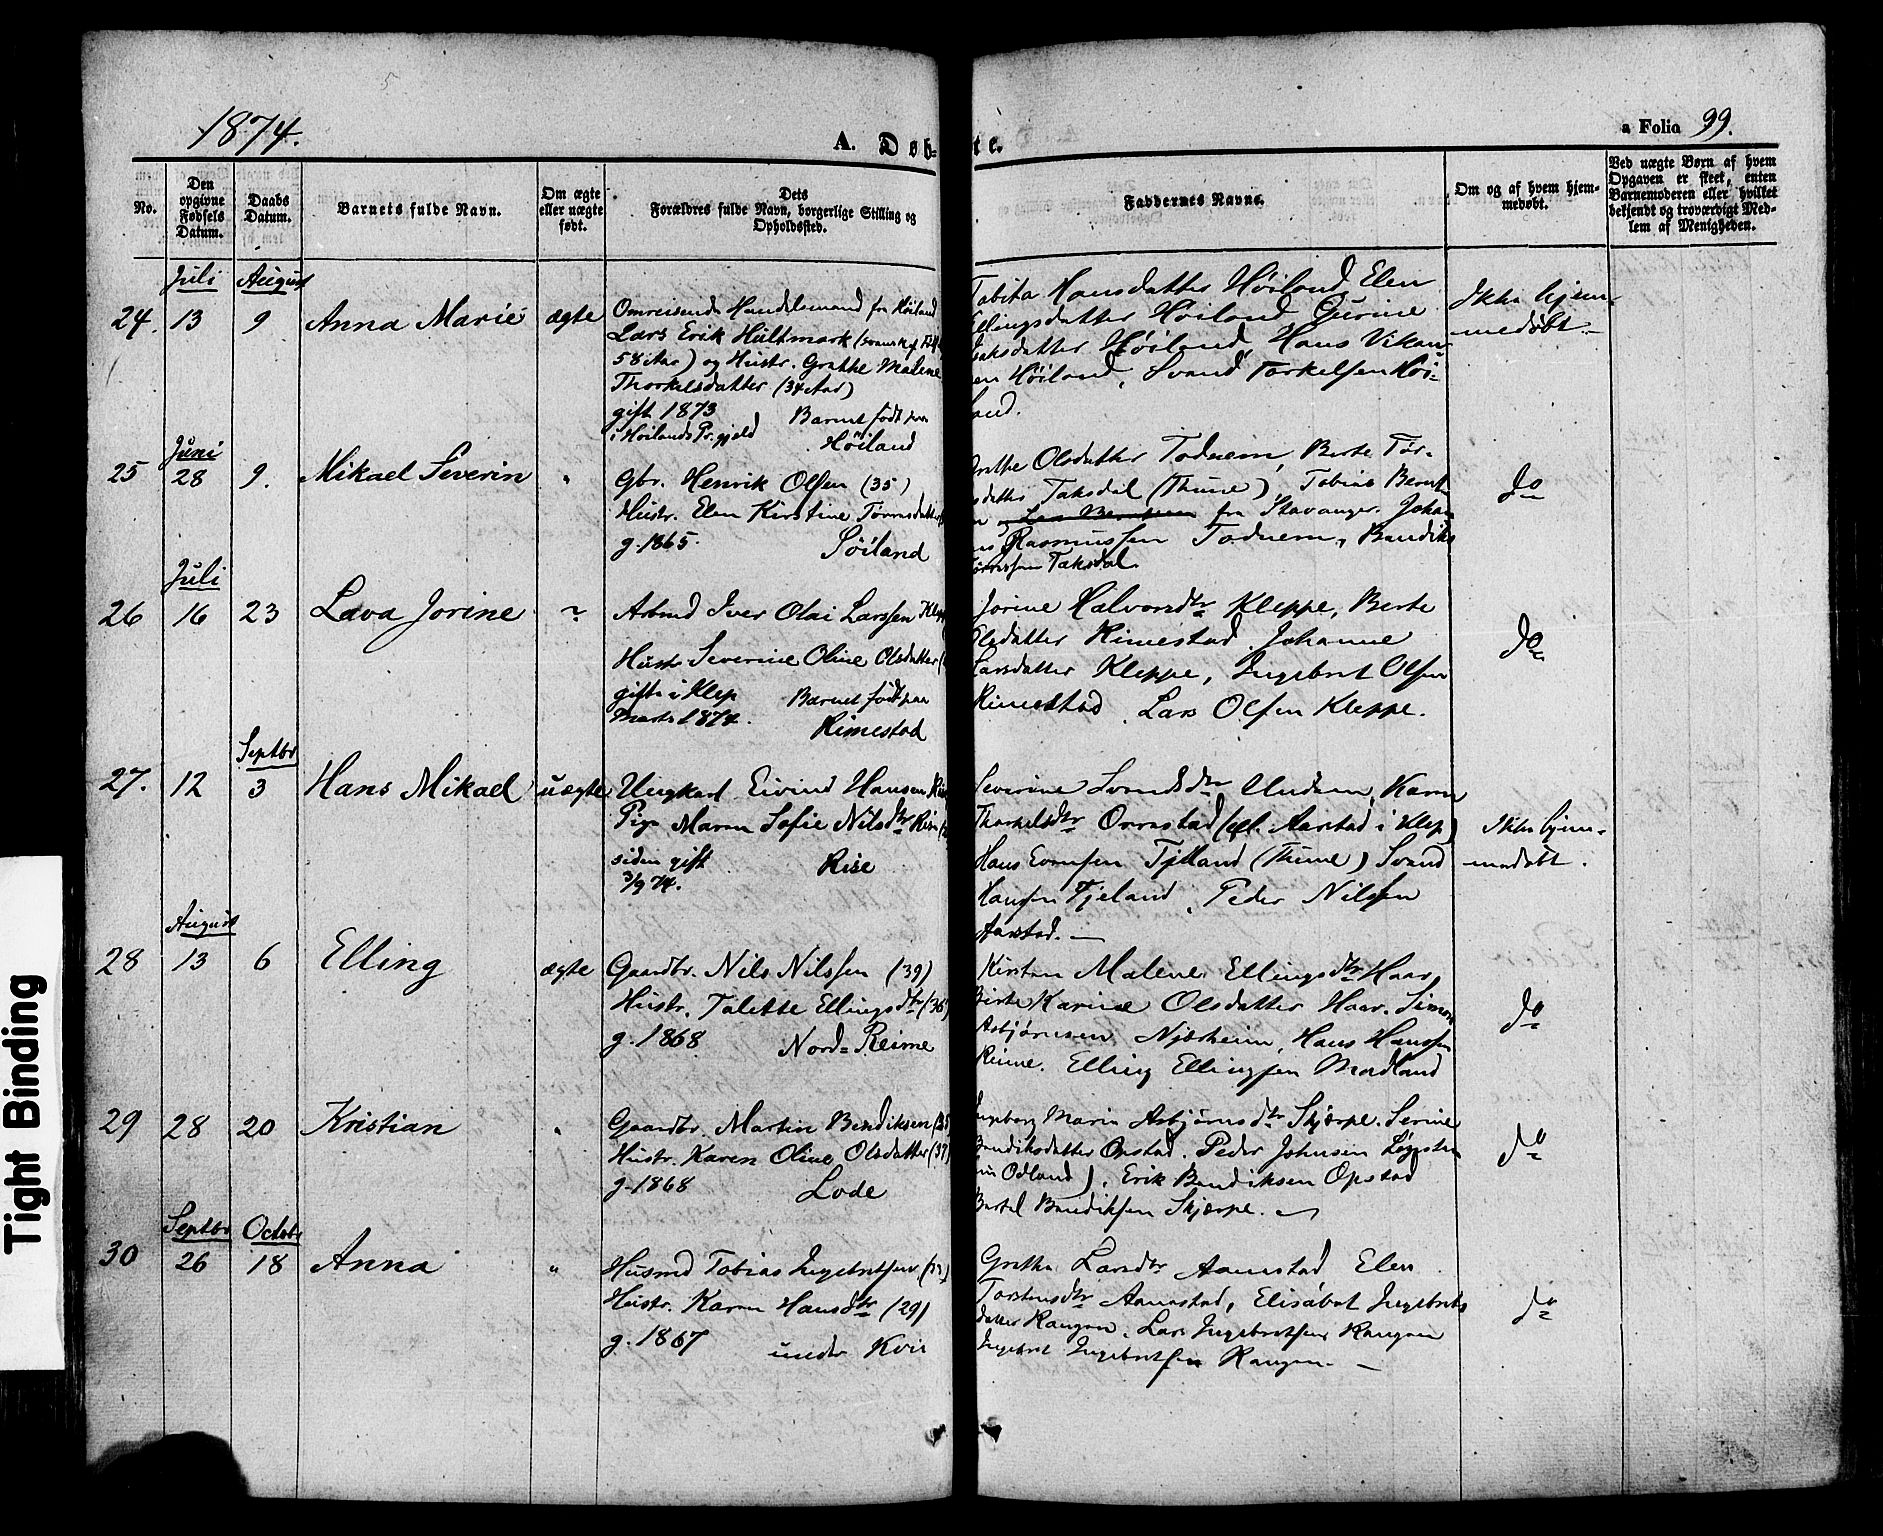 1874.
A. Døb-
te.
a Folio 99.
No.
Den opgivne Fødsels Datum.
Daabs Datum.
Barnets fulde Navn.
Om ægte eller uægte født.
Dets Forældres fulde Navn, borgerlige Stilling og Opholdssted.
Faddernes Navne.
Om og af hvem hjemmedøbt.
Ved uægte Børn af hvem Opgaven er skeet, enten Barnemoderen eller hvilket bekjendt og troværdigt Medlem af Menigheden.
Juli August
24. 13 9 Anna Marie ægte
Omreisende Handelsmand fra Høiland
Lars Erik Hultmark
58 Aar) og Hustr. Grethe Malene
Thorkelsdatter (34 Aar)
gift 1873 Barnet født paa
i Høilands Pr.gjeld Høiland
Tabita Hansdatter Høiland Elen
Ellingsdatter Høiland Gurine
Høiland, Hans
Høiland, Svend Torkelsen Høi-
land.
Ikke hjem-
medøbt
Juni
25 28 9. Mikael Severin "
Gbr. Henrik Olsen (35)
Hustr. Elen Kirstine
g. 1865. Søiland
Grethe Olsdatter Toduem, Berte Tør-
Taksdal (Thime) Tobias Bernt-
fra Stavanger. Johan-
Rasmussen Toduem, Bendiks
Taksdal.
do
Juli
26 16 23 Lava Jorine "
Arbmd Iver Olai Larssen Klep
Hustr Severine Oline Olsdatter
gifte i Klep Barnet født paa
Marts 1874. Rimestad
Jorine Halvorsdtr Kleppe, Berte
Olsdatter Rimestad. Johanne
Larsdatter Kleppe, Ingebret Olsen
Rimestad, Lars Olsen Kleppe.
do
Septbr
27. 12 3 Hans Mikael uægte
Ungkarl Eivind Hansen
Pige Maren Sofie Nilsdtr Rise
siden gift Rise
3/9 74.
Severine Svendsdtr Undem, Karen
Thorkelsdtr Orrestad (gl. Aarstad i Klep)
Hans Tjelland (Thime) Svend
Hansen Tjeland, Peder Nilssen
Aarstad.
Ikke hjem-
medøbt.
August
28 13 6 Elling ægte
Gaardbr. Nils Nilssen (39)
Hustr. Talette Ellingsdtr (36)
g. 1868 Nord-Reime
Kirsten Malene Ellingsdtr Haar,
Berte Karine Olsdatter Haar. Simon
Asbjørnsen Njærheim, Hans Hanssen
Reime. Elling Ellingsen Madland
do
29 28 20 Kristian "
Gaardbr. Martin Bendiksen
Hustr. Karen Oline Olsdatter (37)
g. 1868 Lode
Ingeborg Marie Asbjørnsdtr Skjærpe. Serine
Bendiksdatter Opstad. Peder Johnsen
Odland), Erik Bendiksen Opstad
Bertel Bendiksen Skjærpe.
do
Septbr Octobr
30 26 18 Anna "
Husmd Tobias Ingebretsen
Hustr. Karen Hansdtr (29)
g. 1867 under Kvie
Grethe Larsdtr Aanestad Elen
Torstensdtr Aanestad, Elisabet Ingebrets
datter Rangen. Lars Ingebretsen Rangen
Ingebret Ingebretsen Rangen.
do
Tight Binding